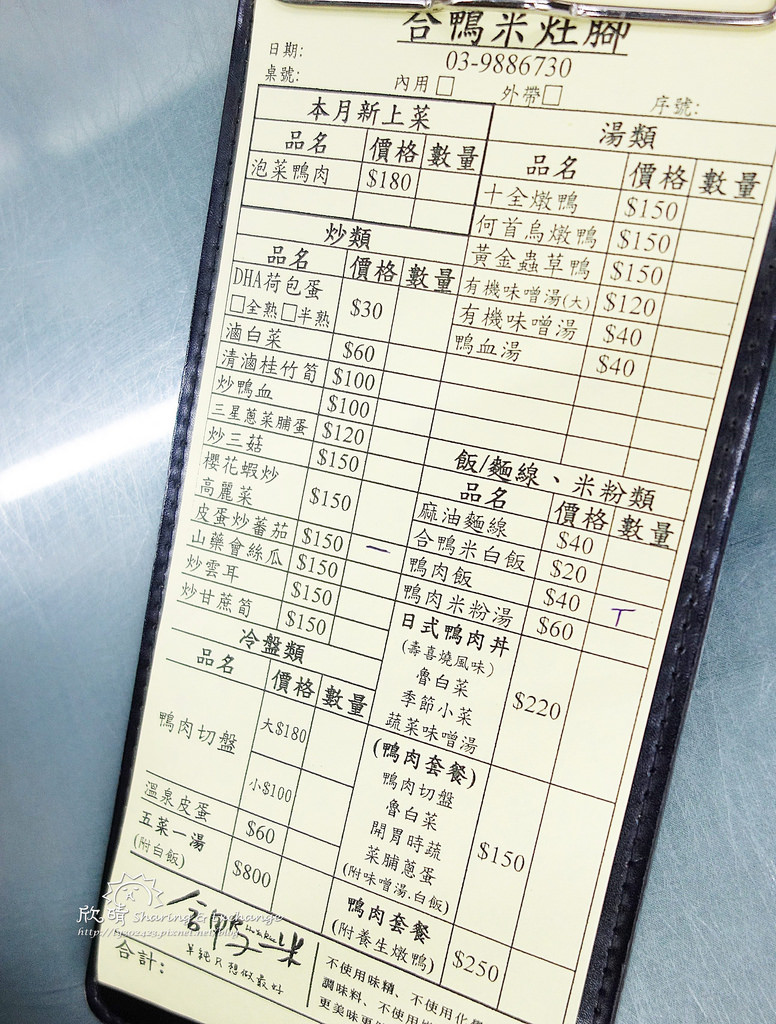 合鴨米灶腳
03-9886730
日期:
桌號:
內用□
外帶□
序號:
本月新上菜
品名 價格 數量
泡菜鴨肉 $180
炒類
品名 價格 數量
DHA荷包蛋 $30
□全熟□半熟
滷白菜 $60
清滷桂竹筍 $100
炒鴨血 $100
三星蔥菜脯蛋 $120
炒三菇 $150
櫻花蝦炒
高麗菜 $150
皮蛋炒蕃茄 $150
山藥會絲瓜 $150
炒雲耳 $150
炒甘蔗筍 $150
冷盤類
品名 價格 數量
鴨肉切盤 大$180
小$100
溫泉皮蛋 $60
五菜一湯 $800
(附白飯)
湯類
品名 價格 數量
十全燉鴨 $150
何首烏燉鴨 $150
黃金蟲草鴨 $150
有機味噌湯(大) $120
有機味噌湯 $40
鴨血湯 $40
飯/麵線、米粉類
品名 價格 數量
麻油麵線 $40
合鴨米白飯 $20
鴨肉飯 $40
鴨肉米粉湯 $60
日式鴨肉丼
(壽喜燒風味)
魯白菜
季節小菜
蔬菜味噌湯
$220
(鴨肉套餐)
鴨肉切盤
魯白菜
開胃時蔬
菜脯蔥蛋
(附味噌湯.白飯)
$150
鴨肉套餐
(附養生燉鴨)
$250
合鴨米
單純只想做最好
合計:
不使用味精、不使用化
調味料、不使用
更美味更
欣晴 Sharing & Exchange